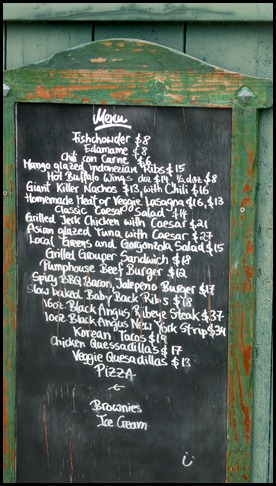 Menu
Fishchowder $8
Edamame $8
Chili con Carne $6
Mango glazed Indonezian Ribs $15
Hot Buffalo Wings doz $14, ½ doz $8
Giant Killer Nachos $13, with Chili $16
Homemade Meat or Veggie Lasagna $16, $13
Classic Caesar Salad $14
Grilled Jerk Chicken with Caesar $21
Asian glazed Tuna with Caesar $23
Local Greens and Gorgonzola Salad $15
Grilled Grouper Sandwich $18
Pumphouse Beef Burger $12
Spicy BBQ Bacon, Jalepeno Burger $17
Slow baked Baby Back Ribs $18
16oz. Black Angus Ribeye Steak $37
10oz. Black Angus New York Strip $34
Korean Tacos $19
Chicken Quessadillas $17
Veggie Quesadillas $13
PIZZA
Brownies
Ice Cream